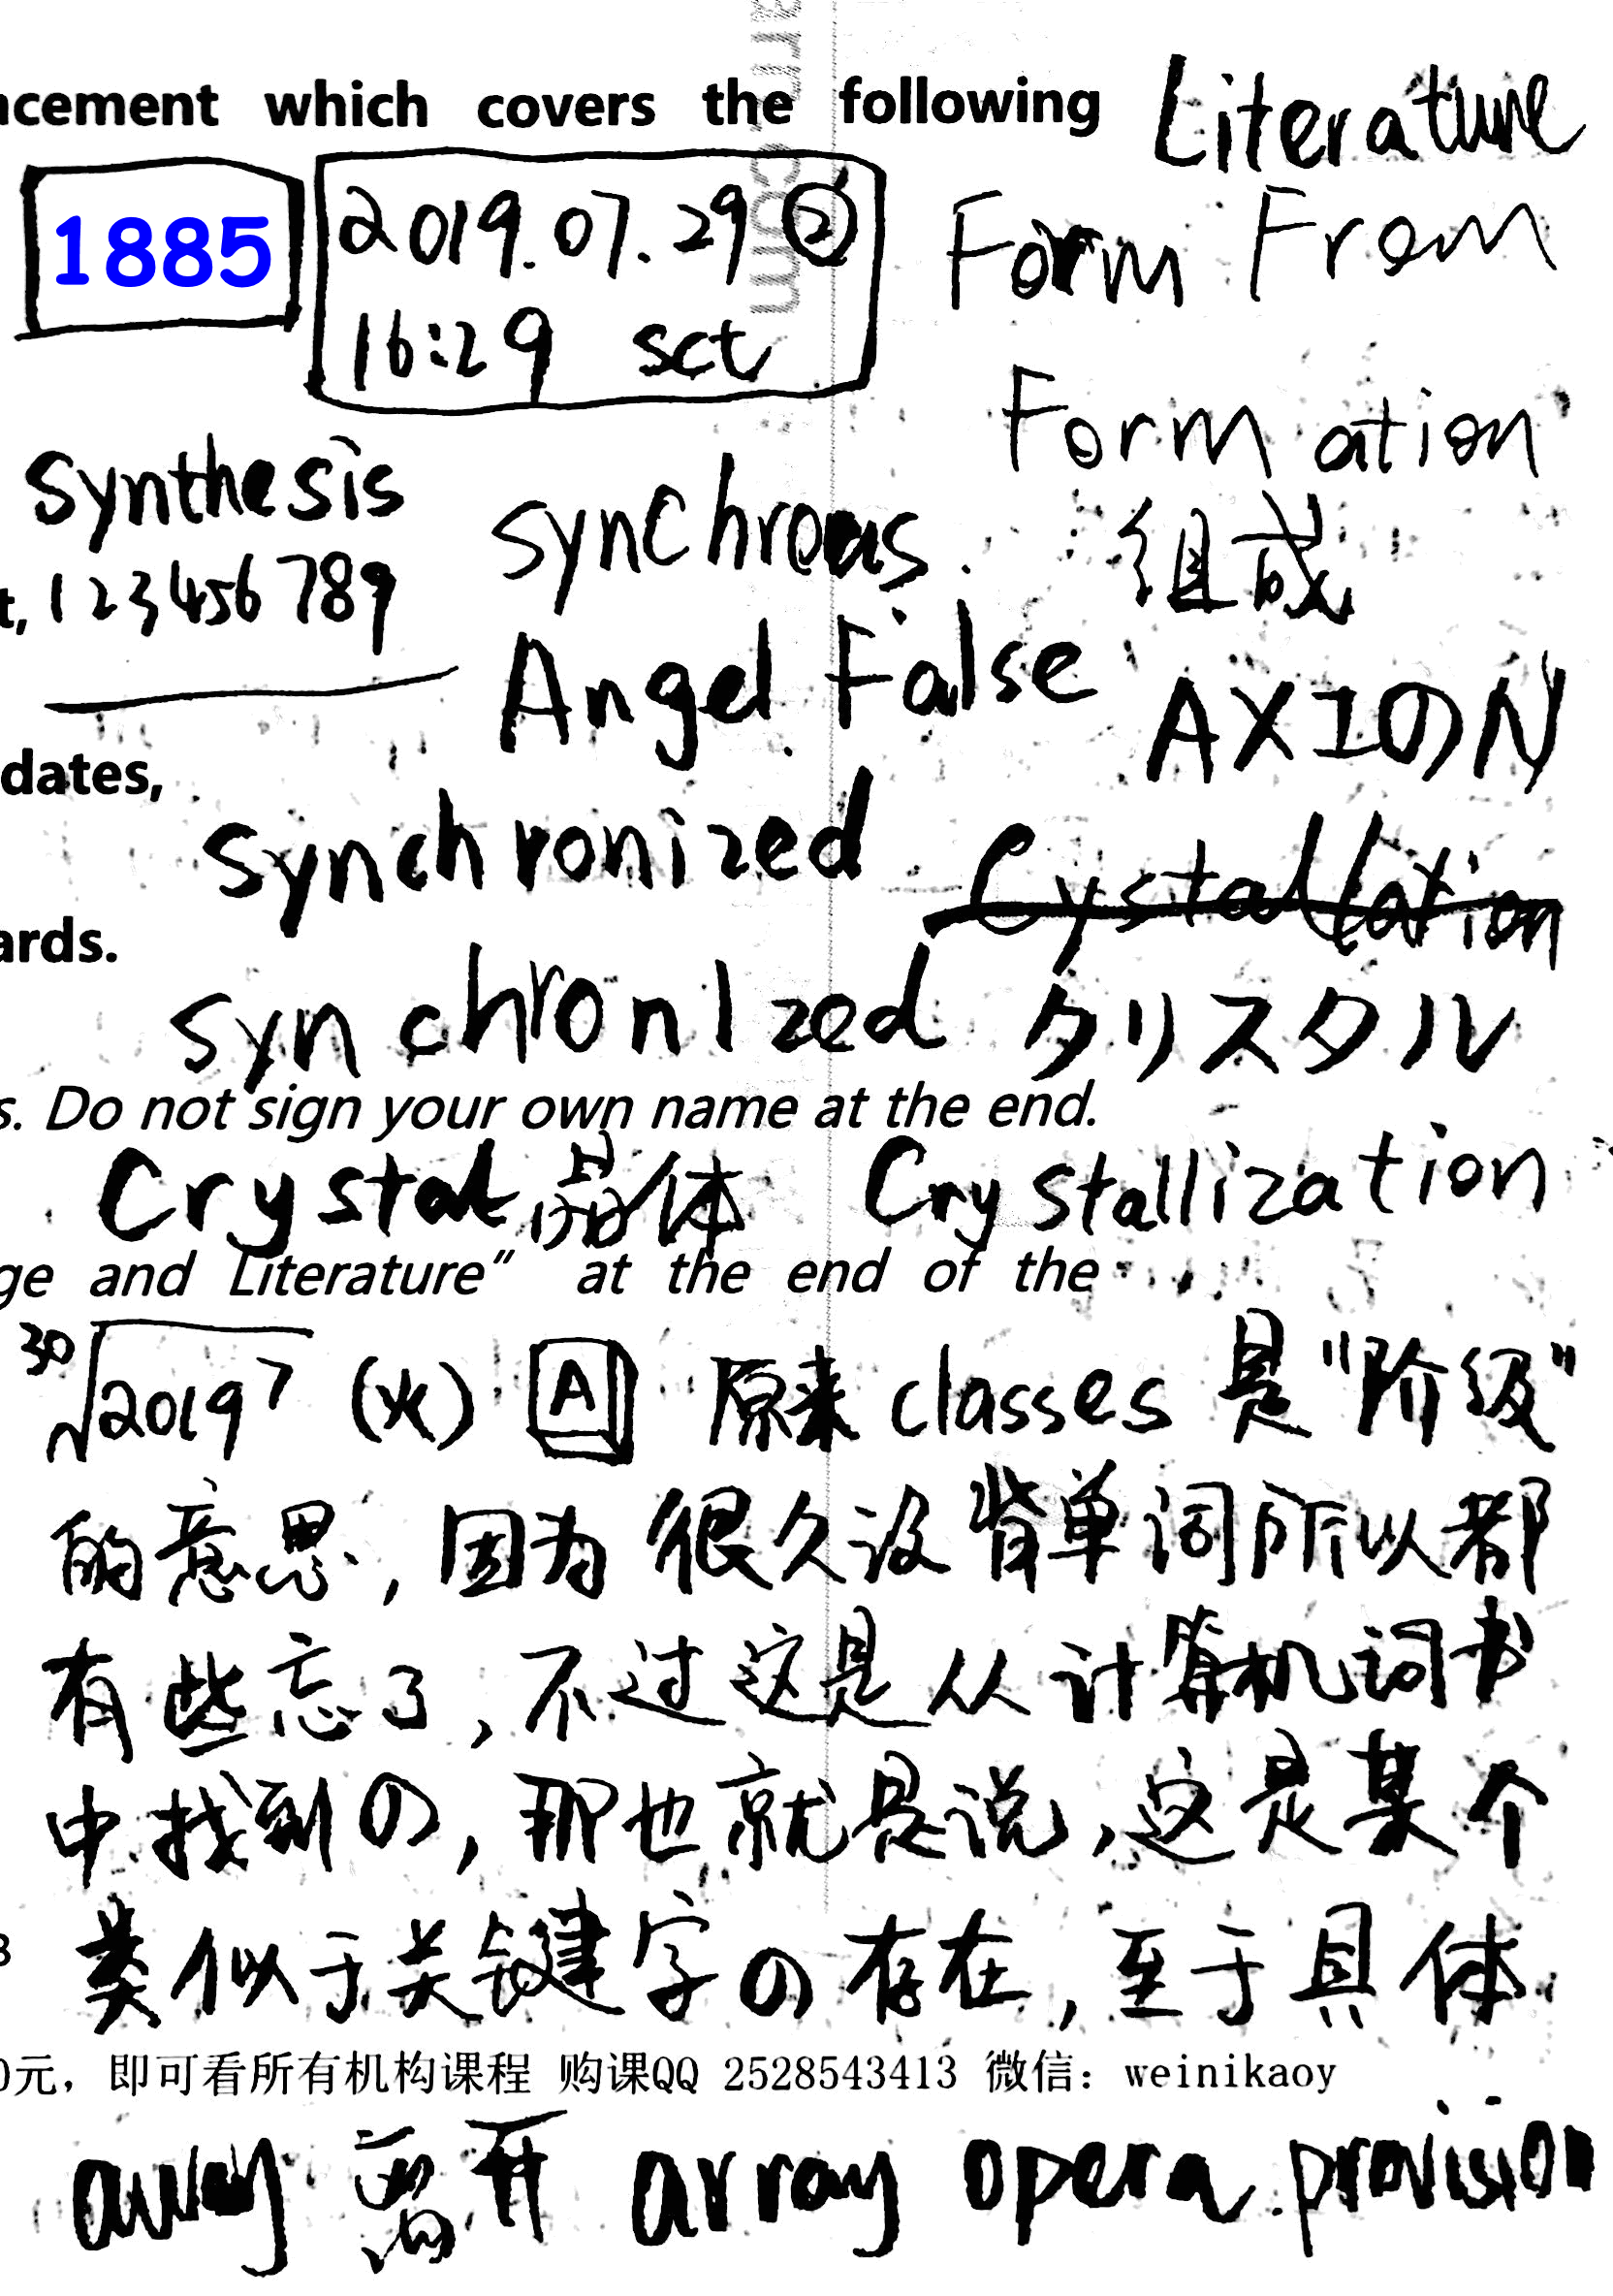 acement which covers the following Literature
1885 2019.07.29 ② Form From
16:29 sct
Formation
synthesis synchrous 组成
t, 123456789
Angel False AXIのN
dates,
synchronized Cystallation
ards.
synchronized クリスタル
s. Do not sign your own name at the end.
Crystal 晶体 Crystallization
ge and Literature” at the end of the
30√2019 7 (火) A 原来 classes 是“阶级”
的意思，因为很久没背单词所以都
有些忘了，不过这是从计算机词书
中找到の，那也就是说，这是某个
类似于关键字の存在，至于具体
0元，即可看所有机构课程 购课QQ 2528543413 微信：weinikaoy
away 离开 array opera provision